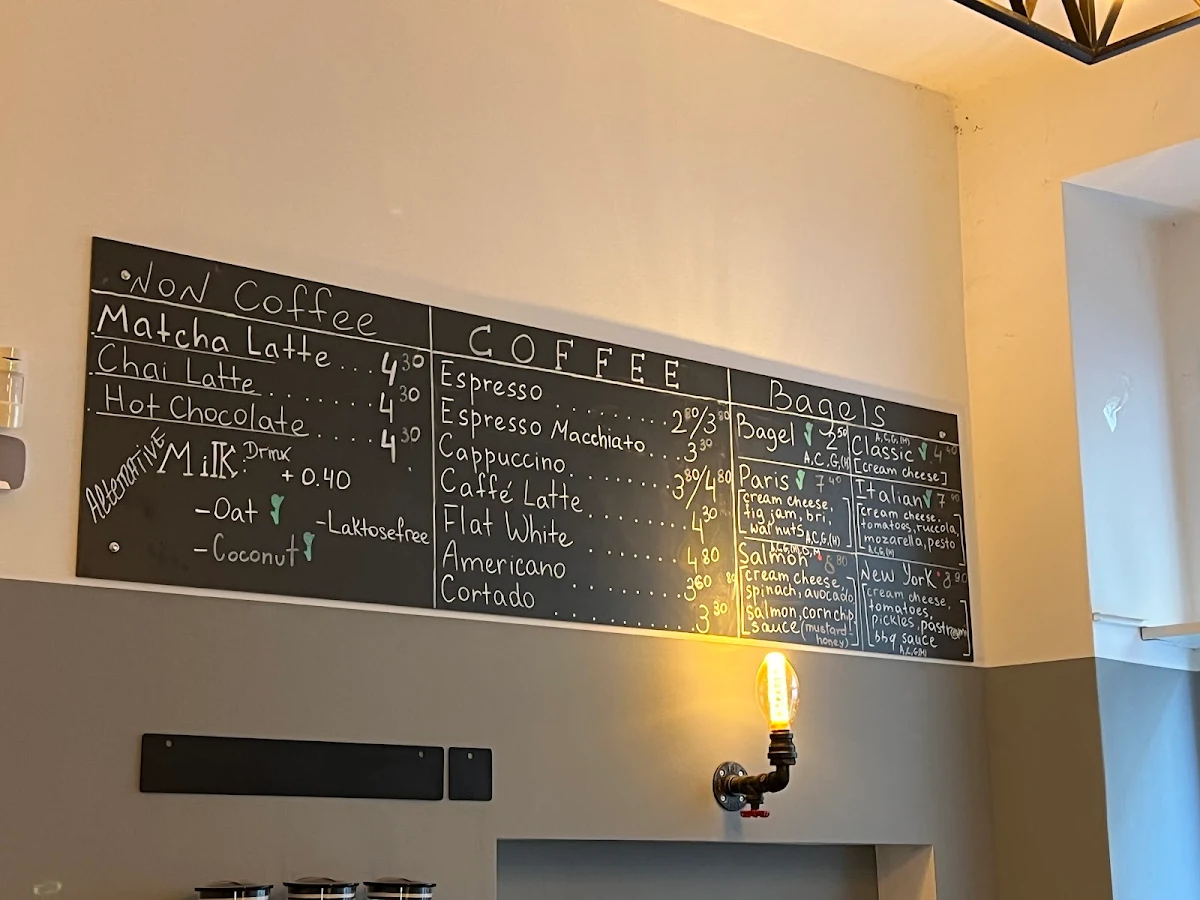 NoN Coffee
Matcha Latte.... 4 30
Chai Latte........ 4 30
Hot Chocolate..... 4 30
Altenrative Milk Drink
+ 0.40
-Oat
-Laktosefree
-Coconut
COFFEE
Espresso ........ 2 80/3 80
Espresso Macchiato....3 30
Cappuccino........ 3 80/4 80
Caffé Latte........ 4 30
Flat White ....... 4 80
Americano ........ 3 60
Cortado ........ 3 30
Bagels
Bagel 2 50
A,C,G,(H)
Paris 7 40
[cream cheese,
fig jam, bri,
walnuts]
A,C,G,(H)
Salmon 8 80
[cream cheese,
spinach, avocado
salmon, corn chp
sauce (mustard-
honey)]
Classic 4 40
A,C,G,(H)
[cream cheese]
Italian 7
[cream cheese,
tomatoes, ruccola,
mozarella, pesto]
A,C,G,(H)
New York 8 90
[cream cheese,
tomatoes,
pickles, pastrami
bbq sauce]
A,C,G,(H)